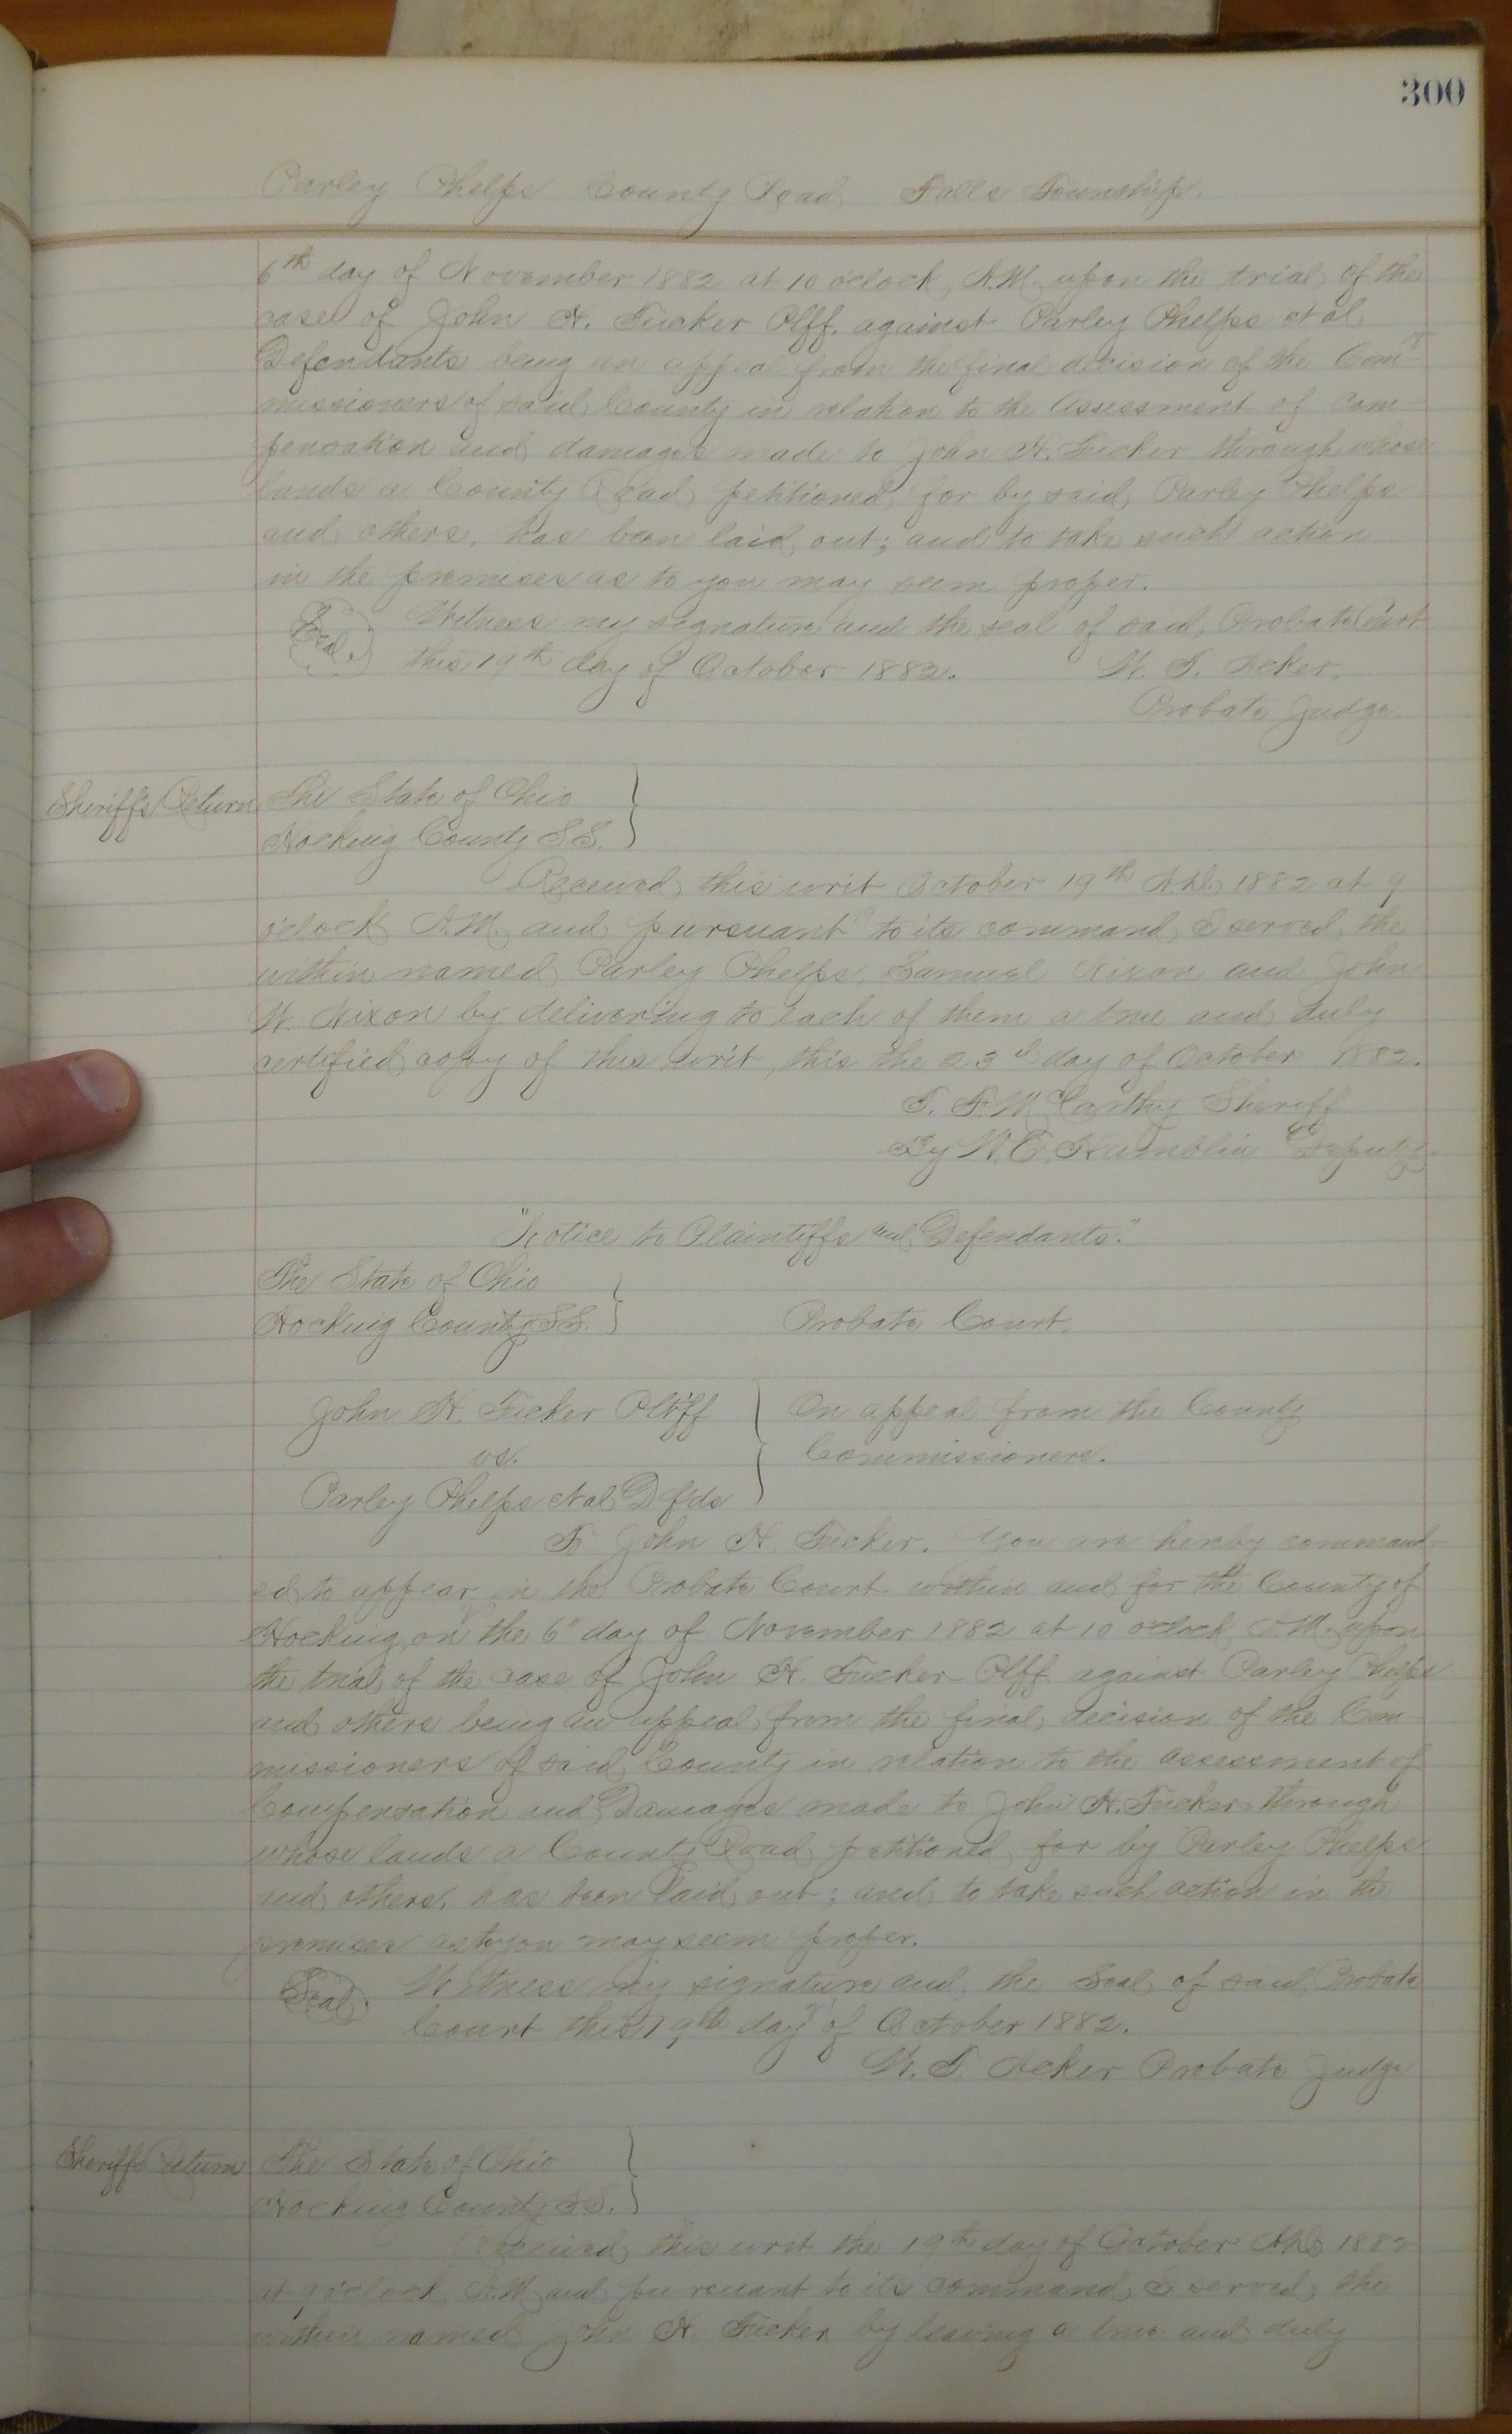 300
Parley Phelps County Road Falls Township.
6th day of November 1882 at 10 o'clock A.M. upon the trial of the
case of John H. Tucker Plff. against Parley Phelps et al
Defendants being an appeal from the final decision of the Com-
missioners of said County in relation to the assessment of com-
pensation and damages made to John H. Tucker through whose
lands a County Road petitioned for by said Parley Phelps
and others, has been laid out; and to take such action
in the premises as to you may seem proper.
Seal. Witness my signature and the seal of said Probate Court
this 19th day of October 1882. W. T. Acker,
Probate Judge
Sheriff's Return The State of Ohio
Hocking County SS.
Received this writ October 19th A.D. 1882 at 9
o'clock A.M. and pursuant to its command I served the
within named Parley Phelps, Samuel Nixon and John
W. Nixon by delivering to each of them a true and duly
certified copy of this writ, this the 23d day of October 1882.
T. F. McCarthy Sheriff
By W. E. Hamblin Deputy.
"Notice to Plaintiffs and Defendants."
The State of Ohio
Hocking County SS. Probate Court.
John H. Tucker Pltff On appeal from the County
vs. Commissioners.
Parley Phelps et al Dfds
To John H. Tucker. You are hereby command-
ed to appear in the Probate Court within and for the County of
Hocking, on the 6" day of November 1882 at 10 o'clock A.M. upon
the trial of the case of John H. Tucker Plff against Parley Phelps
and others being an appeal from the final decision of the Com-
missioners of said County in relation to the assessment of
Compensation and Damages made to John H. Tucker through
whose lands a County Road petitioned for by Parley Phelps
and others, has been laid out; and to take such action in the
premises as to you may seem proper.
Seal. Witness my signature and the Seal of said Probate
Court this 19th day of October 1882.
W. T. Acker Probate Judge
Sheriffs Return The State of Ohio
Hocking County SS.
Received this writ the 19th day of October A.D. 1882
at 9 o'clock A.M. and pursuant to its command I served the
within named John H. Tucker by leaving a true and duly